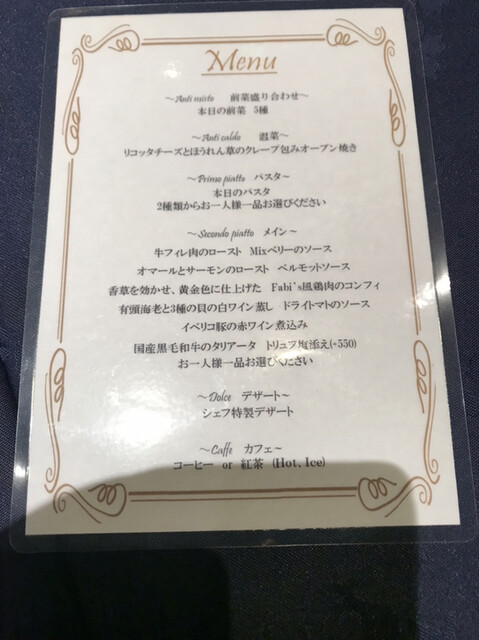 Menu
～Anti misto 前菜盛り合わせ～
本日の前菜 5種
～Anti caldo 温菜～
リコッタチーズとほうれん草のクレープ包みオーブン焼き
～Primo piatto パスタ～
本日のパスタ
2種類からお一人様一品お選びください
～Secondo piatto メイン～
牛フィレ肉のロースト Mixベリーのソース
オマールとサーモンのロースト ベルモットソース
香草を効かせ、黄金色に仕上げた Fabi's風鶏肉のコンフィ
有頭海老と3種の貝の白ワイン蒸し ドライトマトのソース
イベリコ豚の赤ワイン煮込み
国産黒毛和牛のタリアータ トリュフ塩添え(+550)
お一人様一品お選びください
～Dolce デザート～
シェフ特製デザート
～Caffe カフェ～
コーヒー or 紅茶 (Hot, Ice)